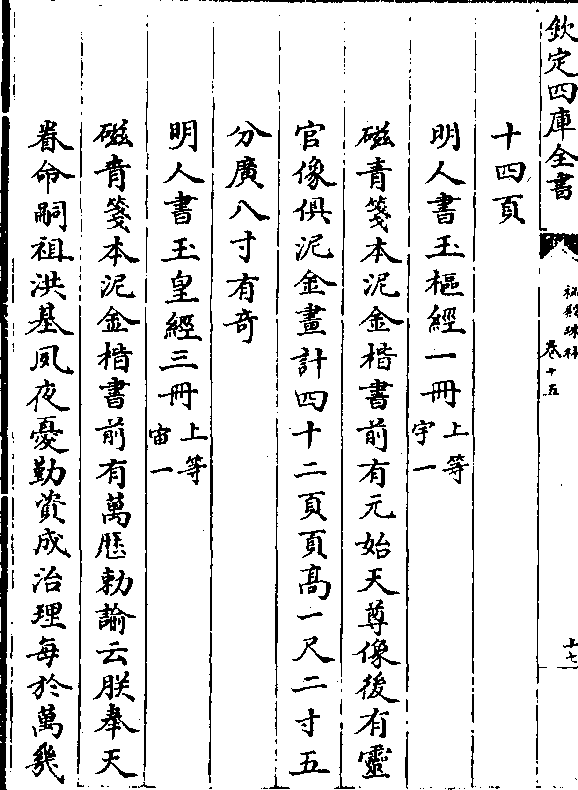 欽定四庫全書
秘殿珠林
卷十五
十七
十四頁
明人書玉樞經一冊上等宇一
磁青箋本泥金楷書前有元始天尊像後有靈
官像俱泥金畫計四十二頁頁高一尺二寸五
分廣八寸有奇
明人書玉皇經三冊上等宙一
磁青箋本泥金楷書前有萬歷勅諭云朕奉天
眷命嗣祖洪基夙夜憂勤資成治理每於萬幾